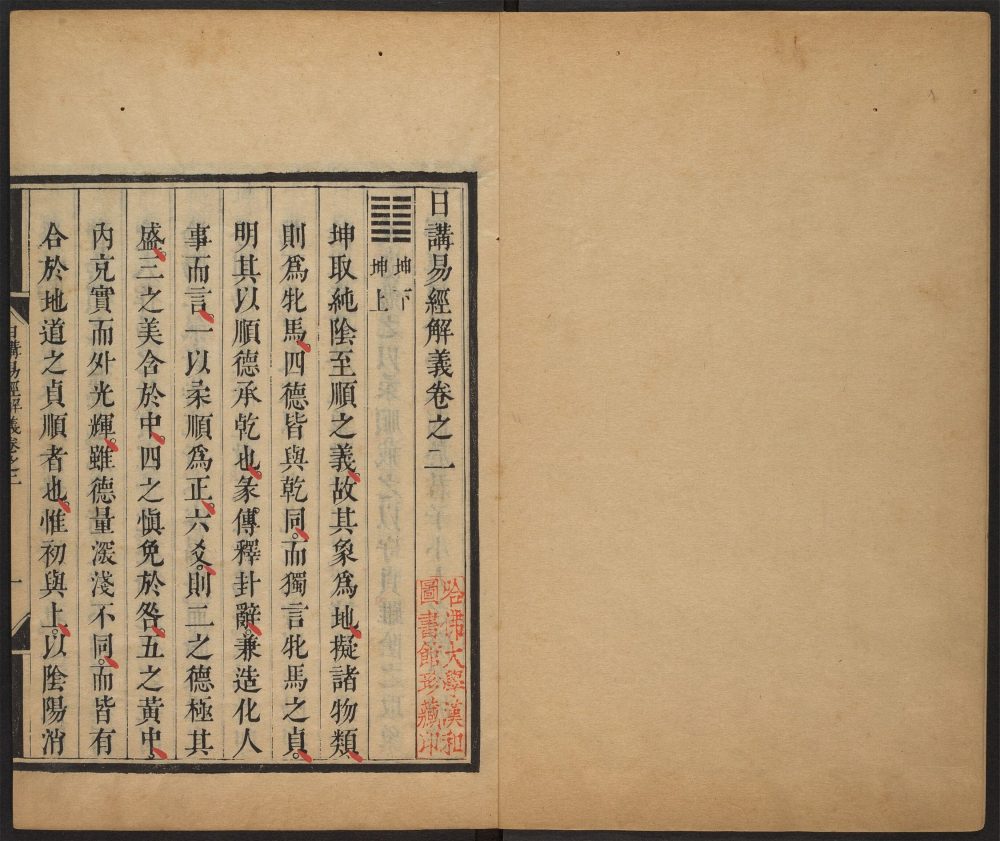 日講易經解義卷之二
坤下
坤上
坤取純陰至順之義。故其象爲地。擬諸物類。
則爲牝馬。四德皆與乾同。而獨言牝馬之貞。
明其以順德承乾也。彖傳釋卦辭。兼造化人
事而言。一以柔順爲正。六爻。則二之德極其
盛。三之美含於中。四之愼免於咎。五之黃中。
內充實而外光輝。雖德量深淺不同。而皆有
合於地道之貞順者也。惟初與上。以陰陽消
日講易經解義卷之二
一
哈佛大學漢和
圖書館珍藏印